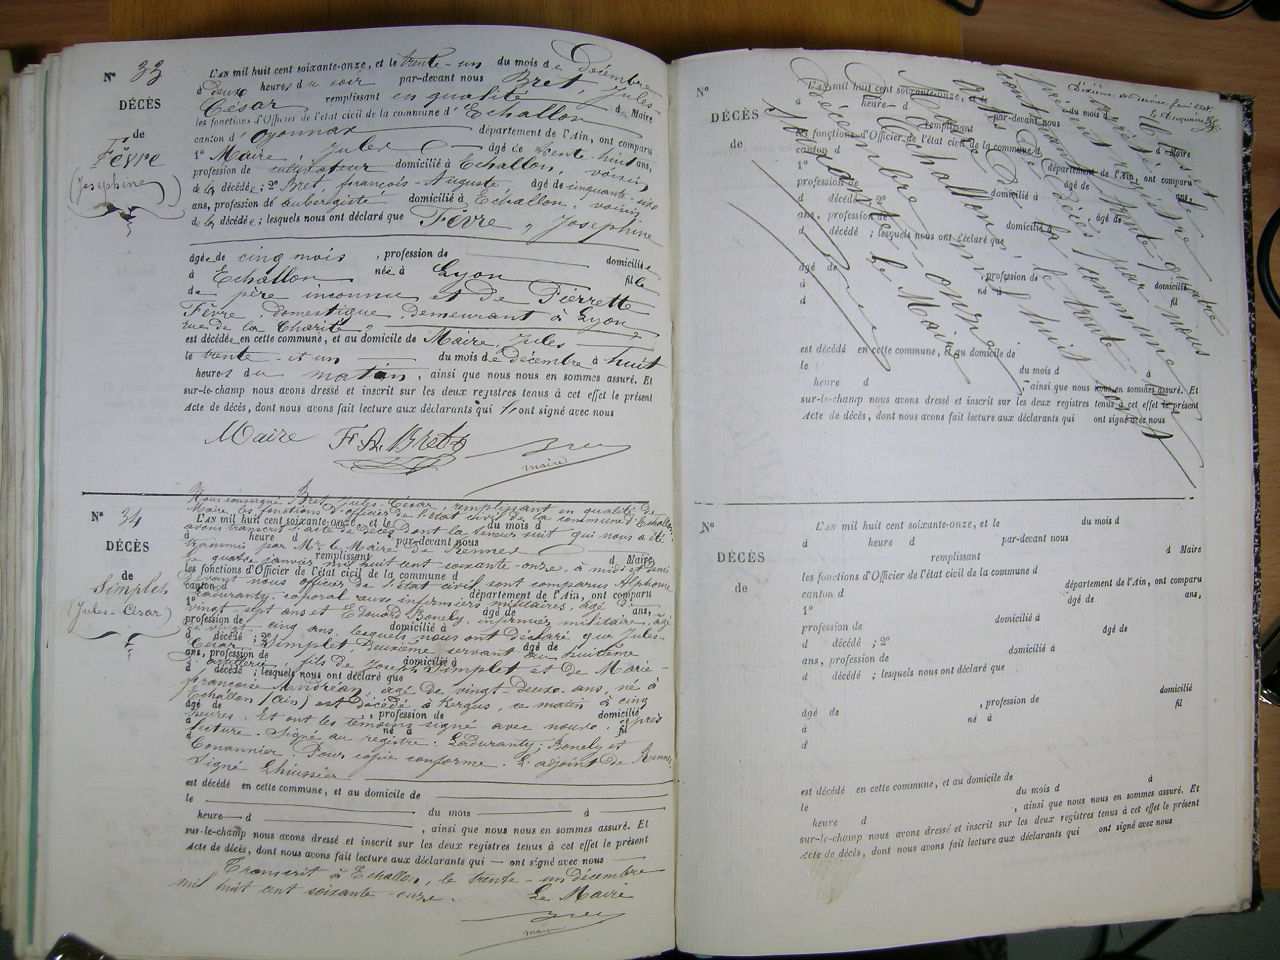 N° 33
DÉCÈS
de
Fèvre
(Joséphine)
L'AN mil huit cent soixante-onze, et le trente-un du mois de Décembre
à deux heures du soir par-devant nous Bret, Jules-
César remplissant en qualité de Maire
les fonctions d'Officier de l'état civil de la commune d'Echallon
canton d'Oyonnax département de l'Ain, ont comparu
1° Maire, Jules âgé de trente-huit ans,
profession de cultivateur domicilié à Echallon, voisin
de la décédée ; 2° Bret, françois-Auguste, âgé de cinquante-six
ans, profession de aubergiste domicilié à Echallon, voisin
de la décédée ; lesquels nous ont déclaré que Fèvre, Joséphine
âgée de cinq mois, profession de domiciliée
à Echallon née à Lyon fille
de père inconnu et de Pierrette
Fèvre, domestique demeurant à Lyon
rue de la Charité,
est décédée en cette commune, et au domicile de Maire, Jules
le trente-et-un du mois de décembre à huit
heures du matin, ainsi que nous nous en sommes assuré. Et
sur-le-champ nous avons dressé et inscrit sur les deux registres tenus à cet effet le présent
Acte de décès, dont nous avons fait lecture aux déclarants qui ont signé avec nous
Maire F A Bret
maire
N° 34
DÉCÈS
de
Simplet
(Jules-César)
Nous soussigné Bret, Jules-César, remplissant en qualité de
Maire les fonctions d'officier de l'état civil de la commune d'Echallon
avons transcrit l'acte de décès dont la teneur suit qui nous a été
transmis par Mr le Maire de Rennes
le quatre janvier mil huit cent soixante-onze, à midi et demi
devant nous officier de l'état civil sont comparus Alphonse
Laduranty, caporal aux infirmiers militaires, âgé de
vingt-sept ans et Edouard Bonely, infirmier militaire, âgé
de vingt-cinq ans, lesquels nous ont déclaré que Jules-
César Simplet Deuxième servant au huitième
d'artillerie, fils de Joseph Simplet et de Marie-
françoise Andréan, âgé de vingt-deux ans, né à
Echallon (Ain) est décédé à Kergus, ce matin à cinq
heures. Et ont les témoins signé avec nous après
lecture. Signé au registre. Laduranty, Bonely et
Conannier. Pour copie conforme. L'adjoint de Rennes
Signé Lhuissier
L'AN mil huit cent soixante-onze, et le du mois d
à heure d par-devant nous
remplissant d Maire
les fonctions d'Officier de l'état civil de la commune d
canton d département de l'Ain, ont comparu
1° âgé de ans,
profession de domicilié à
d décédé ; 2° âgé de
ans, profession de domicilié à
d décédé ; lesquels nous ont déclaré que
âgé de , profession de domicilié
à né à fil
d
est décédé en cette commune, et au domicile de
le du mois d à
heure d , ainsi que nous nous en sommes assuré. Et
sur-le-champ nous avons dressé et inscrit sur les deux registres tenus à cet effet le présent
Acte de décès, dont nous avons fait lecture aux déclarants qui ont signé avec nous
Transcrit à Echallon, le trente-un décembre
mil huit cent soixante-onze.
Le Maire
maire
N°
DÉCÈS
de
L'AN mil huit cent soixante-onze, et le du mois d
à heure d par-devant nous
remplissant d Maire
les fonctions d'Officier de l'état civil de la commune d
canton d département de l'Ain, ont comparu
1° âgé de ans,
profession de domicilié à
d décédé ; 2° âgé de
ans, profession de domicilié à
d décédé ; lesquels nous ont déclaré que
âgé de , profession de domicilié
à né à fil
d
est décédé en cette commune, et au domicile de
le du mois d à
heure d , ainsi que nous nous en sommes assuré. Et
sur-le-champ nous avons dressé et inscrit sur les deux registres tenus à cet effet le présent
Acte de décès, dont nous avons fait lecture aux déclarants qui ont signé avec nous
registre
contenant trente-quatre
actes de Décès par nous
Maire de la commune
d'Echallon, le trente-
Décembre mil huit cent
soixante-onze
Le Maire
N°
DÉCÈS
de
L'AN mil huit cent soixante-onze, et le du mois d
à heure d par-devant nous
remplissant d Maire
les fonctions d'Officier de l'état civil de la commune d
canton d département de l'Ain, ont comparu
1° âgé de ans,
profession de domicilié à
d décédé ; 2° âgé de
ans, profession de domicilié à
d décédé ; lesquels nous ont déclaré que
âgé de , profession de domicilié
à né à fil
d
est décédé en cette commune, et au domicile de
le du mois d à
heure d , ainsi que nous nous en sommes assuré. Et
sur-le-champ nous avons dressé et inscrit sur les deux registres tenus à cet effet le présent
Acte de décès, dont nous avons fait lecture aux déclarants qui ont signé avec nous